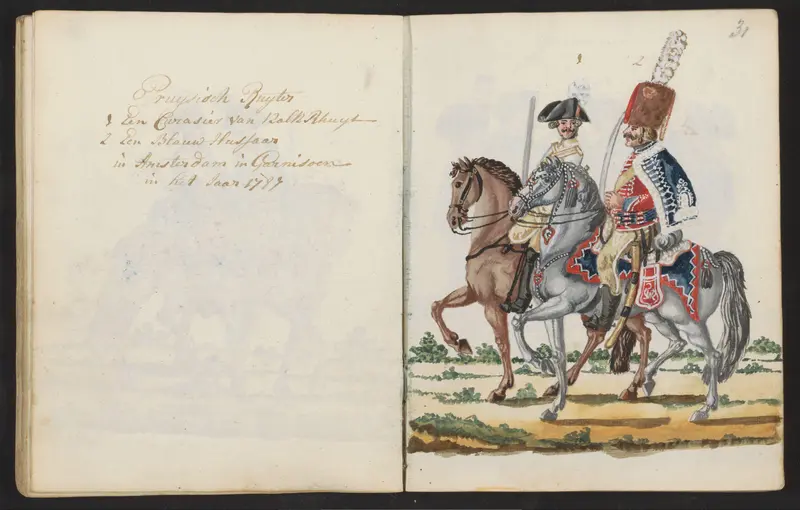 Pruysisch Ruyter
1 Een Curasier van Kalkkhuyt
2 Een Blauw Hussaar
in Amsterdam in Gernisoen
in het Jaar 1787
31
1 2